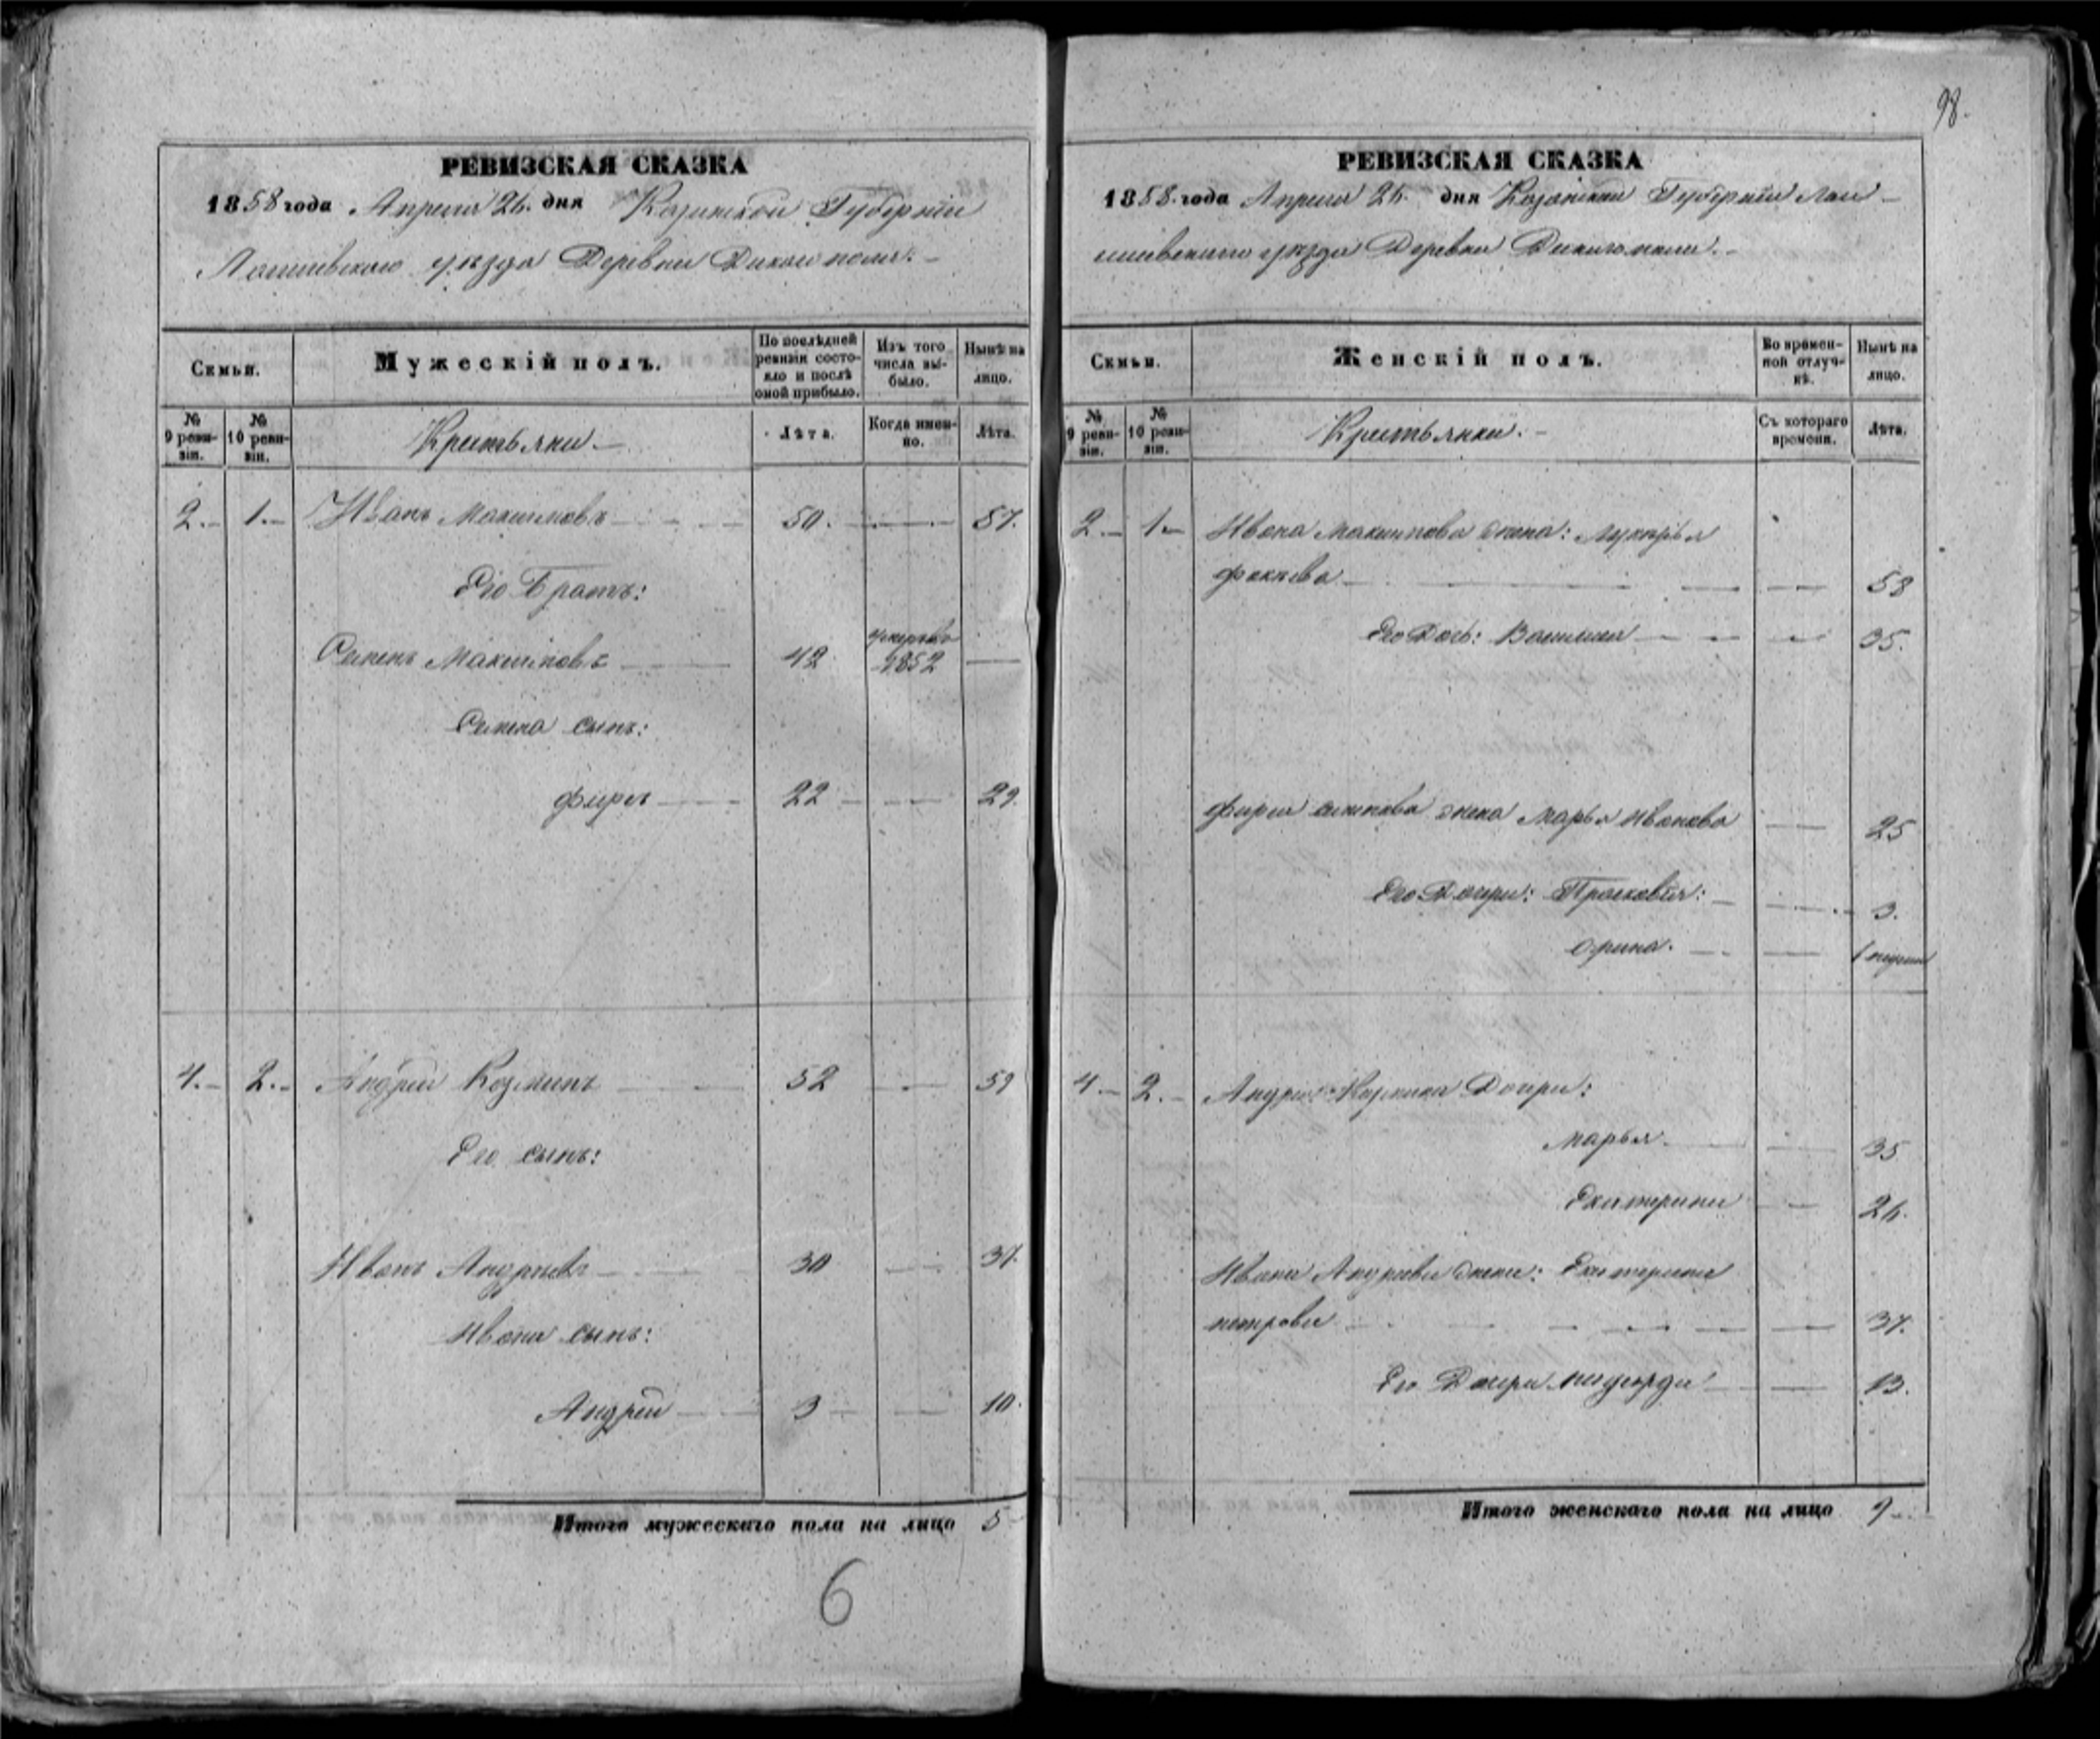 98.
РЕВИЗСКАЯ СКАЗКА
1858 года Апреля 26. дня Казанской Губернiи
Лаишевскаго уезда Деревни Дикаго поля.
Семьи.
Мужескiй полъ.
По послѣдней ревизiи состояло и послѣ оной прибыло.
Изъ того числа выбыло.
Нынѣ на лицо.
№ 9 ревизiи.
№ 10 ревизiи.
Крестьяни
Лѣта.
Когда именно.
Лѣта.
2. 1. Иванъ Максимовъ 50. 57.
Его Братъ:
Семенъ Максимовъ 42 1852
Семена сынъ:
фирсъ 22 29.
4. 2. Андрей Козминъ 52 59
Его сынъ:
Иванъ Андреевъ 30 37.
Ивана сынъ:
Андрей 3 10.
Итого мужескаго пола на лицо 5
6
РЕВИЗСКАЯ СКАЗКА
1858. года Апреля 26. дня Казанской Губернiи Лаи-
шевскаго уезда Деревни Дикаго поля.
Семьи.
Женскiй полъ.
Во временной отлучкѣ.
Нынѣ на лицо.
№ 9 ревизiи.
№ 10 ревизiи.
Крестьянки.
Съ котораго времени.
Лѣта.
2. 1. Ивана Максимова жена: Лукерья
58
Его Дочь: 35.
фирса семенова жена Марья Иванова 25
Его Дочери: Прасковiя: 3.
Орина. 1 недели
4. 2. Андрея Козмина Дочери:
Марья. 35
Екатерина 26.
Ивана Андреева жена: Екатерина
петрова 37.
Его Дочери 13.
Итого женскаго пола на лицо 9